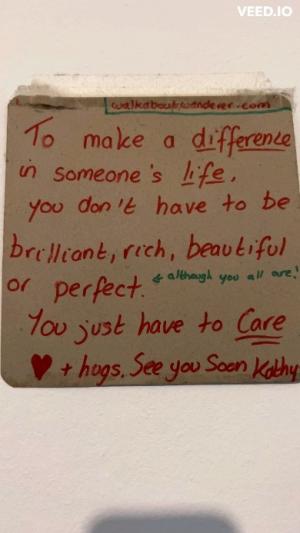 VEED.IO
walkaboutwanderer.com
To make a difference
in someone's life,
you don't have to be
brilliant, rich, beautiful
or perfect. ← although you all are!
You just have to Care
♥ + hugs. See you Soon Kathy